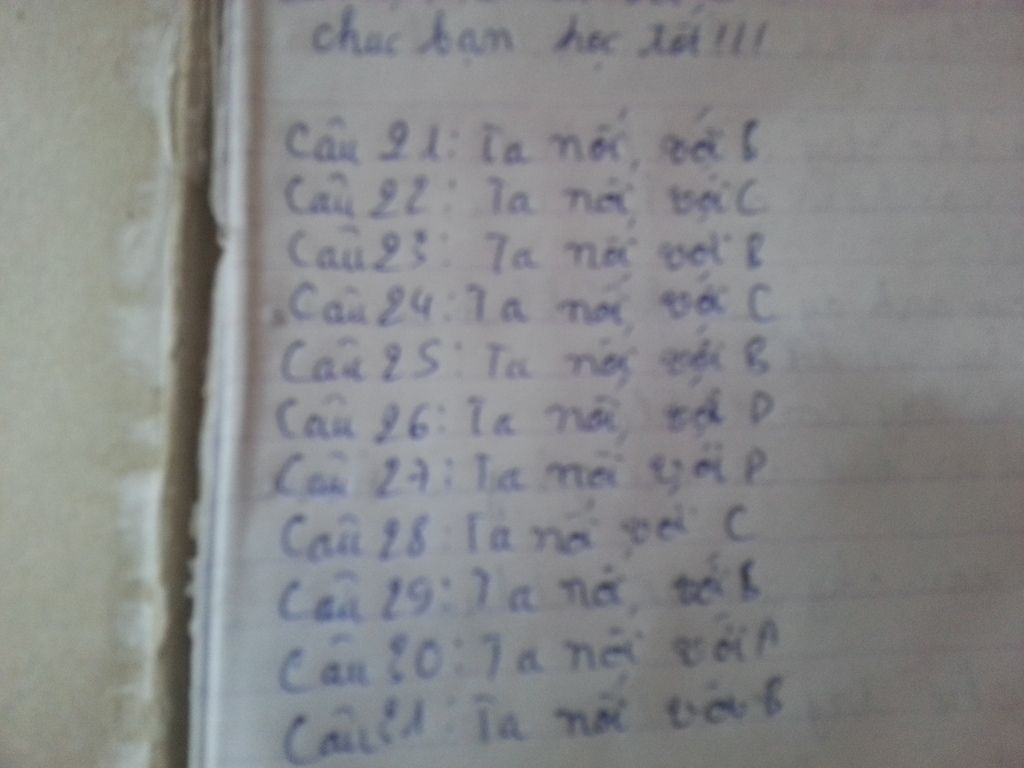 chuc bạn học tốt!!!
Câu 21: Ta nối, với B
Câu 22: Ta nối, với C
Câu 23: Ta nối với B
Câu 24: Ta nối, với C
Câu 25: Ta nối, với B
Câu 26: Ta nối, với D
Câu 27: Ta nối với
Câu 28: Ta nối với C
Câu 29: Ta nối, với B
Câu 20: Ta nối với A
Câu 21: Ta nối với B